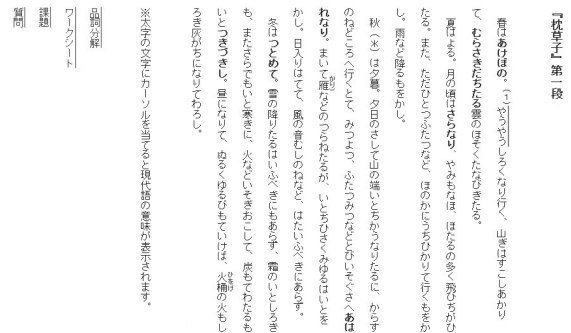 『枕草子』第一段
春はあけぼの。(1)やうやうしろくなり行く、山ぎはすこしあかり
て、むらさきだちたる雲のほそくたなびきたる。
夏はよる。月の頃はさらなり、やみもなほ、ほたるの多く飛びちがひ
たる。また、ただひとつふたつなど、ほのかにうちひかりて行くもをか
し。雨など降るもをかし。
秋(＊)は夕暮。夕日のさして山の端いとちかうなりたるに、からす
のねどころへ行くとて、みつよつ、ふたつみつなどとびいそぐさへあは
れなり。まいて雁などのつらねたるが、いとちひさくみゆるはいとを
かり
かし。日入りはてて、風の音むしのねなど、はたいふべきにあらず。
冬はつとめて。雪の降りたるはいふべきにもあらず、霜のいとしろき
も、またさらでもいと寒きに、火などいそぎおこして、炭もてわたるも
いとつきづきし。昼になりて、ぬるくゆるびもていけば、火桶の火もし
ひをけ
ろき灰がちになりてわろし。
※太字の文字にカーソルを当てると現代語の意味が表示されます。
品詞分解
ワークシート
課題
質問